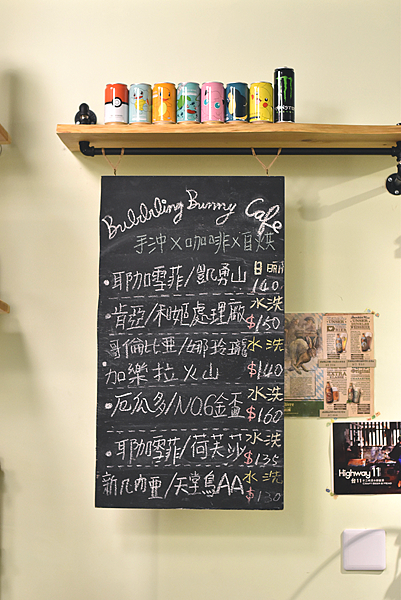 MONSTER
Bubbling Bunny Cafe
手沖×咖啡×自烘
·耶加雪菲/凱勇山 日曬 140
·肯亞/利姬處理廠 水洗 $150
哥倫比亞/娜玲瓏 水洗
·加樂拉火山 $140
·厄瓜多/NO.6金盃 水洗 $160
·耶加雪菲/荷芙莎 水洗 $135
新几內亜/天堂鳥AA 水洗 $130
EXTRA
Highway 11
台11